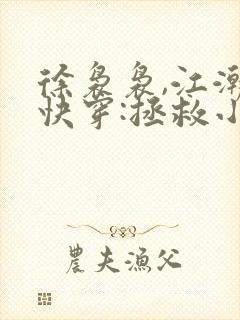 徐袅袅,江
快穿:拯救
農夫漁父